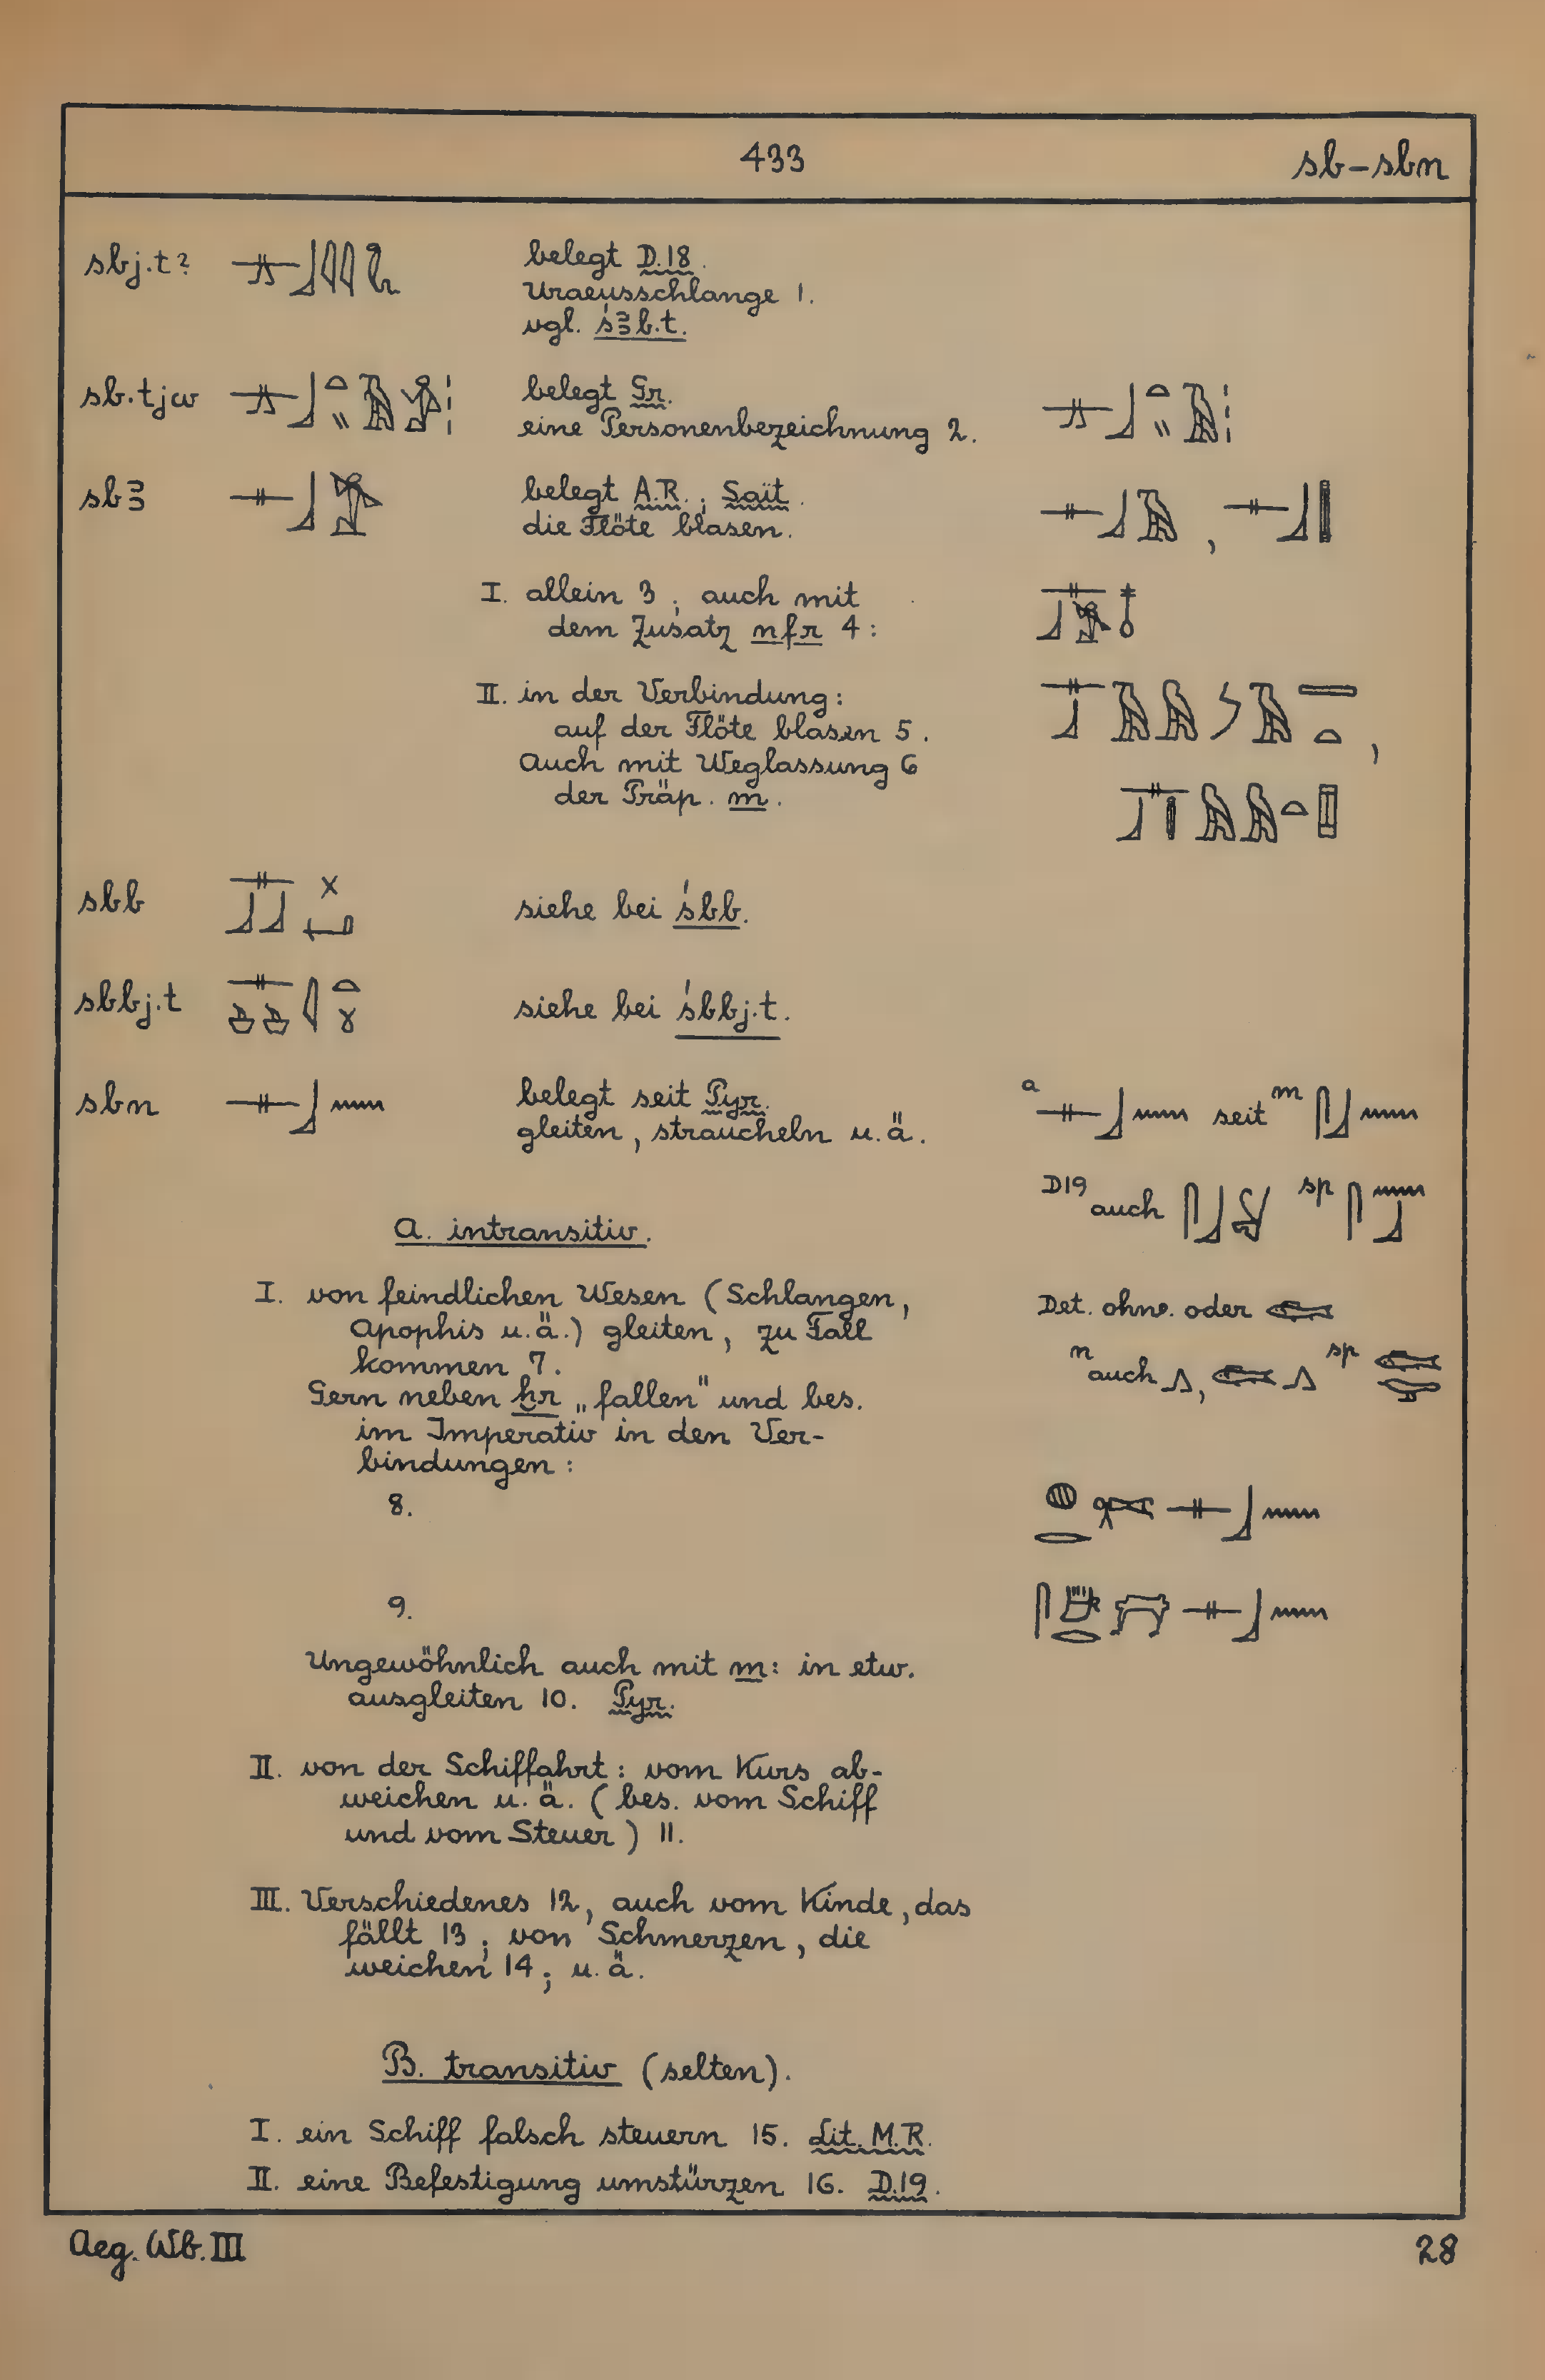 433 sb–sbn
sbj.t? belegt D.18.
Uraeusschlange 1.
vgl. śꜣb.t.
sb.tjw belegt Gr.
eine Personenbezeichnung 2.
sbꜣ belegt A.R.; Saït.
die Flöte blasen.
I. allein 3; auch mit
dem Zusatz nfr 4:
II. in der Verbindung:
auf der Flöte blasen 5.
Auch mit Weglassung 6
der Präp. m.
sbb siehe bei śbb.
sbbj.t siehe bei śbbj.t.
sbn belegt seit Pyr.
gleiten, straucheln u.ä.
a seit m
D19 auch sp
A. intransitiv.
I. von feindlichen Wesen (Schlangen,
Apophis u.ä.) gleiten, zu Fall
kommen 7.
Det. ohne. oder
n auch , sp
Gern neben ḫr „fallen" und bes.
im Imperativ in den Ver-
bindungen:
8.
9.
Ungewöhnlich auch mit m: in etw.
ausgleiten 10. Pyr.
II. von der Schiffahrt: vom Kurs ab-
weichen u.ä. (bes. vom Schiff
und vom Steuer) 11.
III. Verschiedenes 12, auch vom Kinde, das
fällt 13; von Schmerzen, die
weichen 14; u.ä.
B. transitiv (selten).
I. ein Schiff falsch steuern 15. Lit. M.R.
II. eine Befestigung umstürzen 16. D.19.
Aeg. Wb. III 28